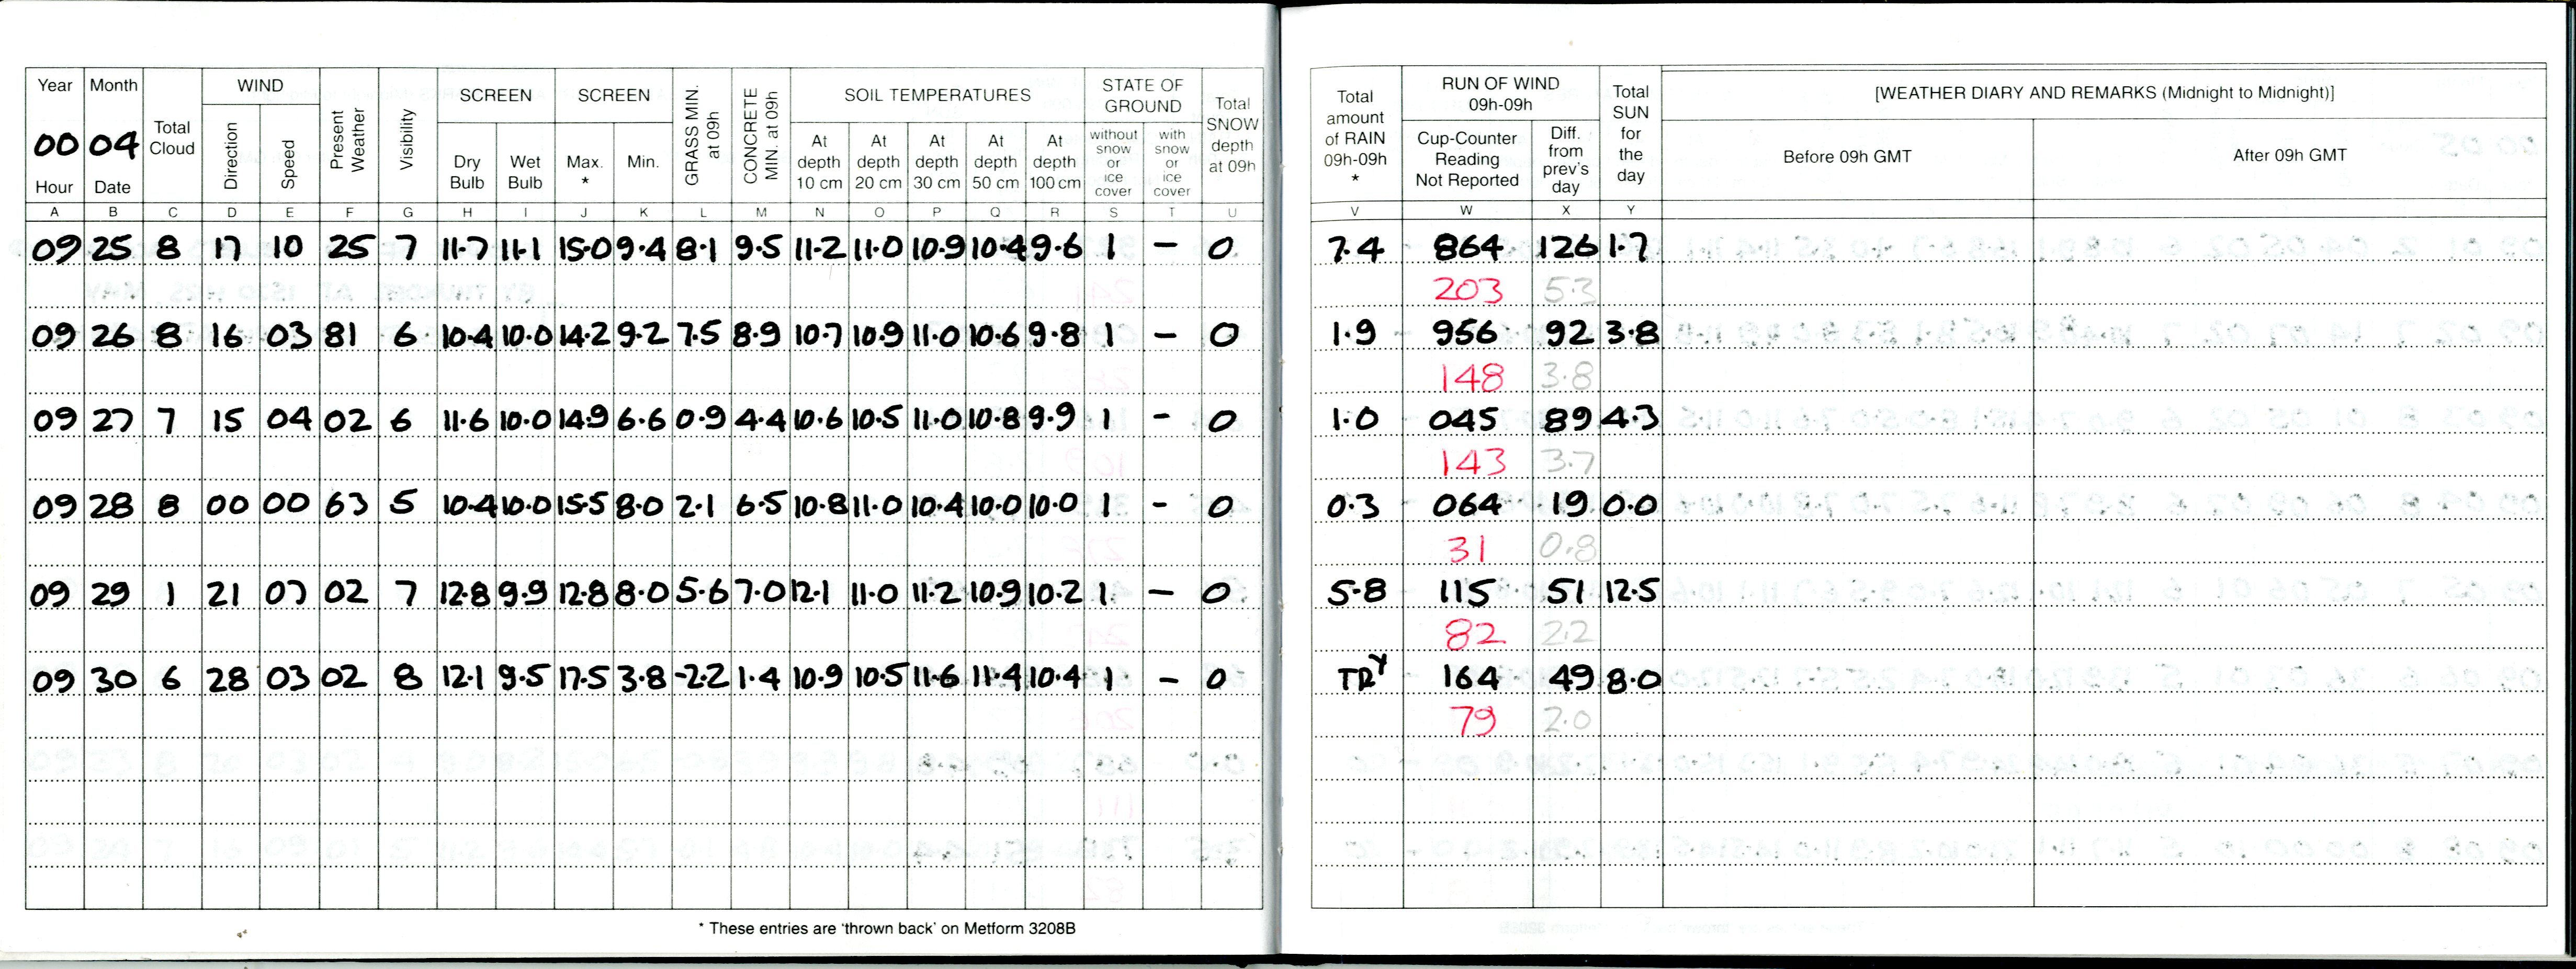 Year Month Total Cloud WIND Present Weather Visibility SCREEN SCREEN GRASS MIN. at 09h CONCRETE MIN. at 09h SOIL TEMPERATURES STATE OF GROUND Total SNOW depth at 09h
00 04 Direction Speed Dry Bulb Wet Bulb Max. * Min. At depth 10 cm At depth 20 cm At depth 30 cm At depth 50 cm At depth 100 cm without snow or ice cover with snow or ice cover
Hour Date
A B C D E F G H I J K L M N O P Q R S T U
09 25 8 17 10 25 7 11.7 11.1 15.0 9.4 8.1 9.5 11.2 11.0 10.9 10.4 9.6 1 – 0
09 26 8 16 03 81 6 10.4 10.0 14.2 9.2 7.5 8.9 10.7 10.9 11.0 10.6 9.8 1 – 0
09 27 7 15 04 02 6 11.6 10.0 14.9 6.6 0.9 4.4 10.6 10.5 11.0 10.8 9.9 1 – 0
09 28 8 00 00 63 5 10.4 10.0 15.5 8.0 2.1 6.5 10.8 11.0 10.4 10.0 10.0 1 – 0
09 29 1 21 07 02 7 12.8 9.9 12.8 8.0 5.6 7.0 12.1 11.0 11.2 10.9 10.2 1 – 0
09 30 6 28 03 02 8 12.1 9.5 17.5 3.8 -2.2 1.4 10.9 10.5 11.6 11.4 10.4 1 – 0
* These entries are 'thrown back' on Metform 3208B
Total amount of RAIN 09h-09h * RUN OF WIND 09h-09h Total SUN for the day [WEATHER DIARY AND REMARKS (Midnight to Midnight)]
Cup-Counter Reading Not Reported Diff. from prev's day Before 09h GMT After 09h GMT
V W X Y
7.4 864 126 1.7
203 5.3
1.9 956 92 3.8
148 3.8
1.0 045 89 4.3
143 3.7
0.3 064 19 0.0
31 0.8
5.8 115 51 12.5
82 2.2
TRY 164 49 8.0
79 2.0